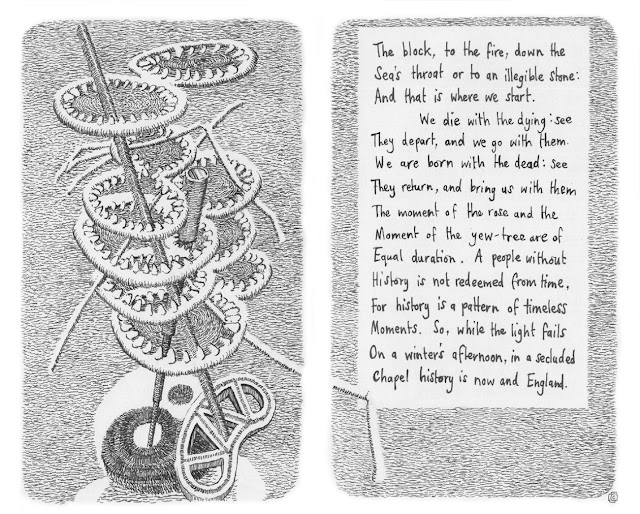 The block, to the fire, down the
Sea's throat or to an illegible stone:
And that is where we start.
We die with the dying: see
They depart, and we go with them.
We are born with the dead: see
They return, and bring us with them
The moment of the rose and the
Moment of the yew-tree are of
Equal duration. A people without
History is not redeemed from time,
For history is a pattern of timeless
Moments. So, while the light fails
On a winter's afternoon, in a secluded
Chapel history is now and England.